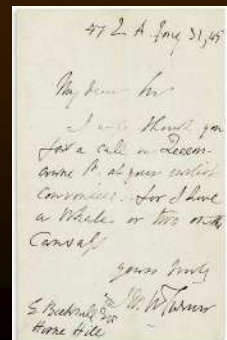 47 Q A Jany 31, 45
My dear Sir
I will thank you
for a call in Queen
anne St. at your earliest
convenience. for I have
a Whale or two on the
Canvas
Yours truly
J. M. W. Turner
E Bicknell Esq
Herne Hill